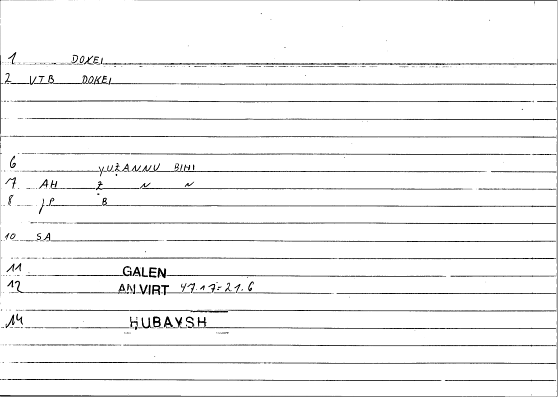 1 DOKEI
2 VTB DOKEI
6 yUẒANNU BIHI
7 AH Ẓ N N
8 JP B
10 SA
11 GALEN
12 AN VIRT 47.17=21.6
14 HUBAYSH